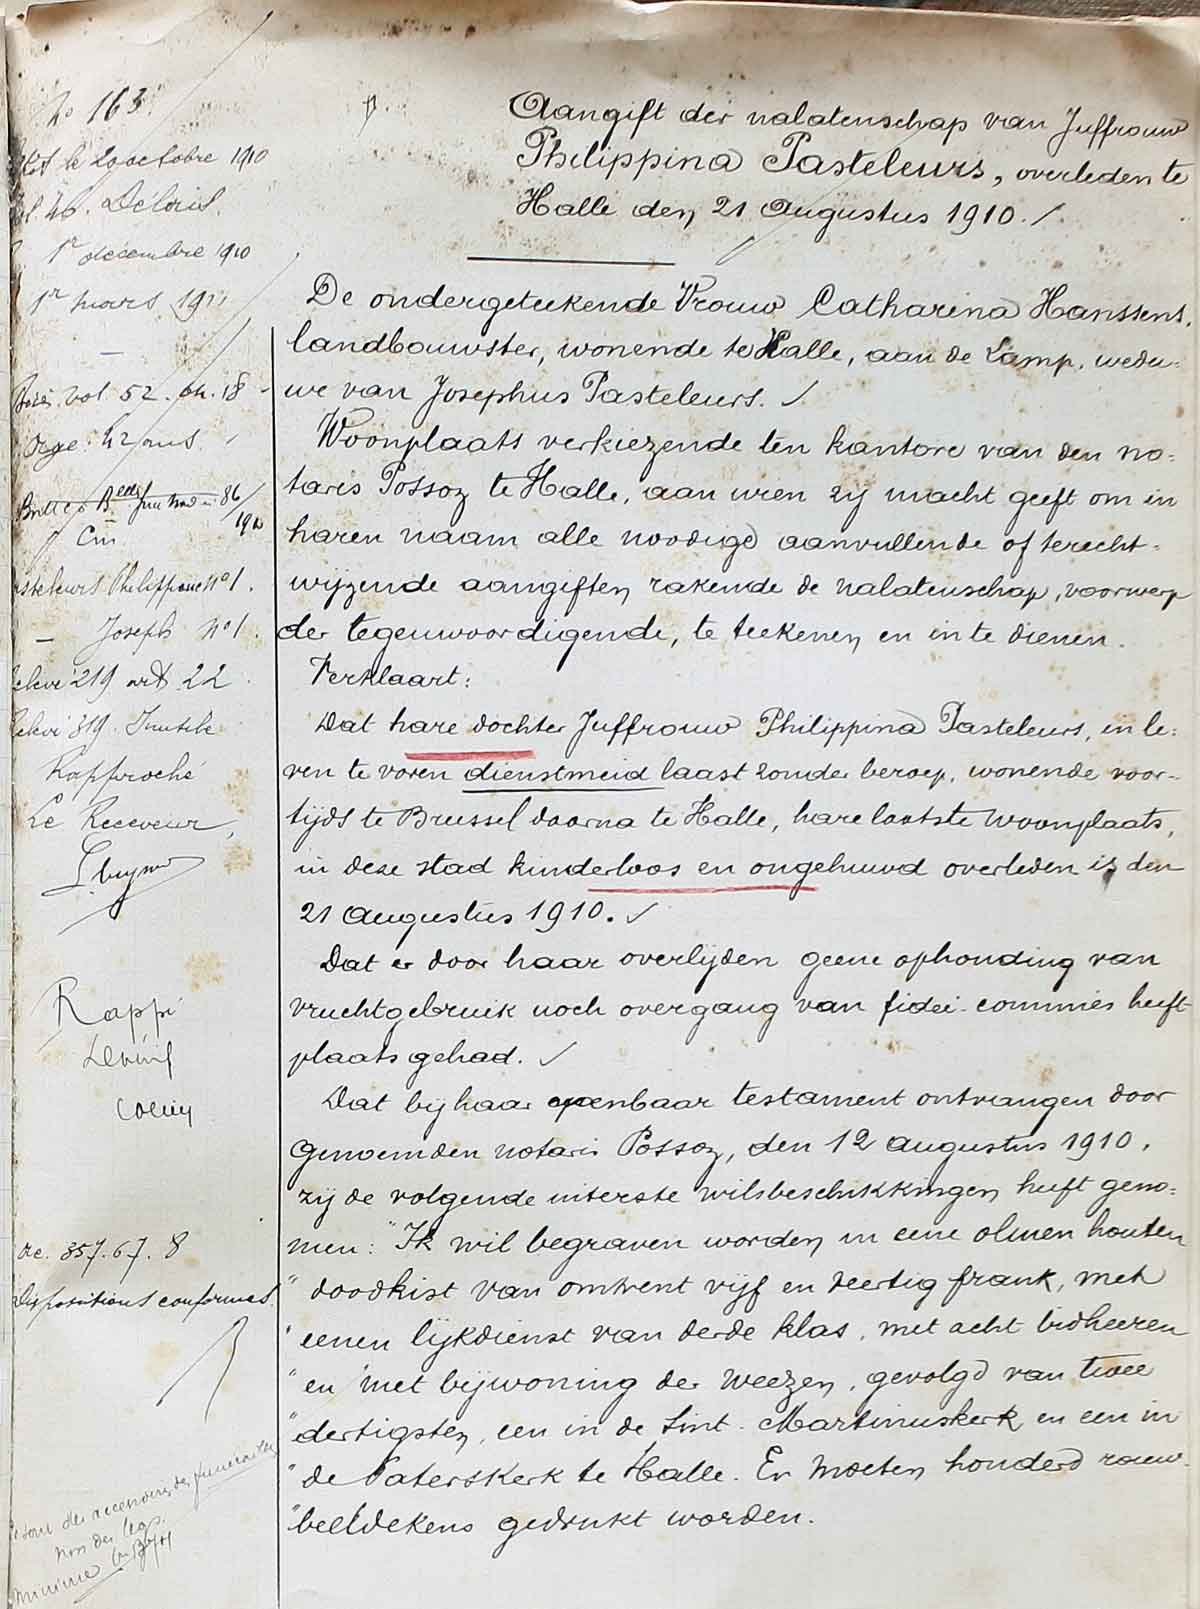 No 163.
le 29 octobre 1910
Déloris.
1er décembre 1910
1er mars 1911
vol 52. 18
Age: 42 ans.
Philippine no 1.
— Joseph no 1.
219 art 22.
819. Inutile
Rapproché
Le Receveur,
Rappt
357.67.8
Dispositions conformes.
funérailles
non des legs.
minime
Aangift der nalatenschap van Juffrouw
Philippina Pasteleurs, overleden te
Halle den 21 Augustus 1910.
De ondergeteekende Vrouw Catharina Hanssens,
landbouwster, wonende te Halle, aan de Lamp, wedu-
we van Josephus Pasteleurs.
Woonplaats verkiezende ten kantore van den no-
taris Possoz te Halle, aan wien zij macht geeft om in
haren naam alle noodige aanvullende of terecht-
wijzende aangiften, rakende de nalatenschap, voorwerp
der tegenwoordigende, te teekenen en in te dienen.
Verklaart:
Dat hare dochter Juffrouw Philippina Pasteleurs, in le-
ven te voren dienstmeid laast zonder beroep, wonende voor-
tijds te Brussel daarna te Halle, hare laatste woonplaats,
in deze stad kinderloos en ongehuwd overleden is den
21 Augustus 1910.
Dat er door haar overlijden geene ophouding van
vruchtgebruik noch overgang van fidei-commies heeft
plaats gehad.
Dat bij haar openbaar testament ontvangen door
genoemden notaris Possoz, den 12 Augustus 1910,
zij de volgende uiterste wilsbeschikkingen heeft geno-
men: "Ik wil begraven worden in eene olmen houten
" doodkist van omtrent vijf en veertig frank, met
" eenen lijkdienst van derde klas, met acht bidheeren
" en met bijwoning der Weezen, gevolgd van twee
" dertigsten, een in de Sint-Martinuskerk en een in
" de Paterskerk te Halle. Er moeten honderd rouw-
" beeldekens gedrukt worden.